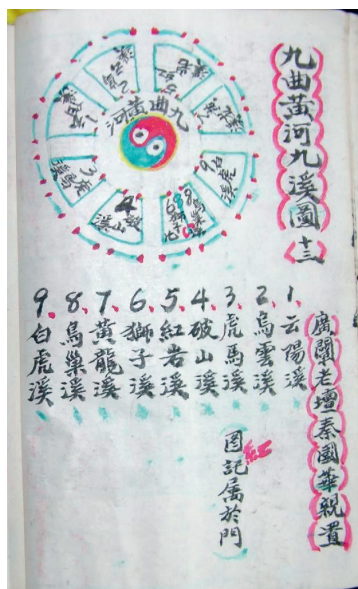 九曲黃河九溪圖 十三
廣闡老壇秦國華親置
1、云陽溪
2、烏雲溪
3、虎馬溪
4、破山溪
5、紅岩溪
6、獅子溪
7、黃龍溪
8、烏巢溪
9、白虎溪
紅
图記属於門
九曲黃河